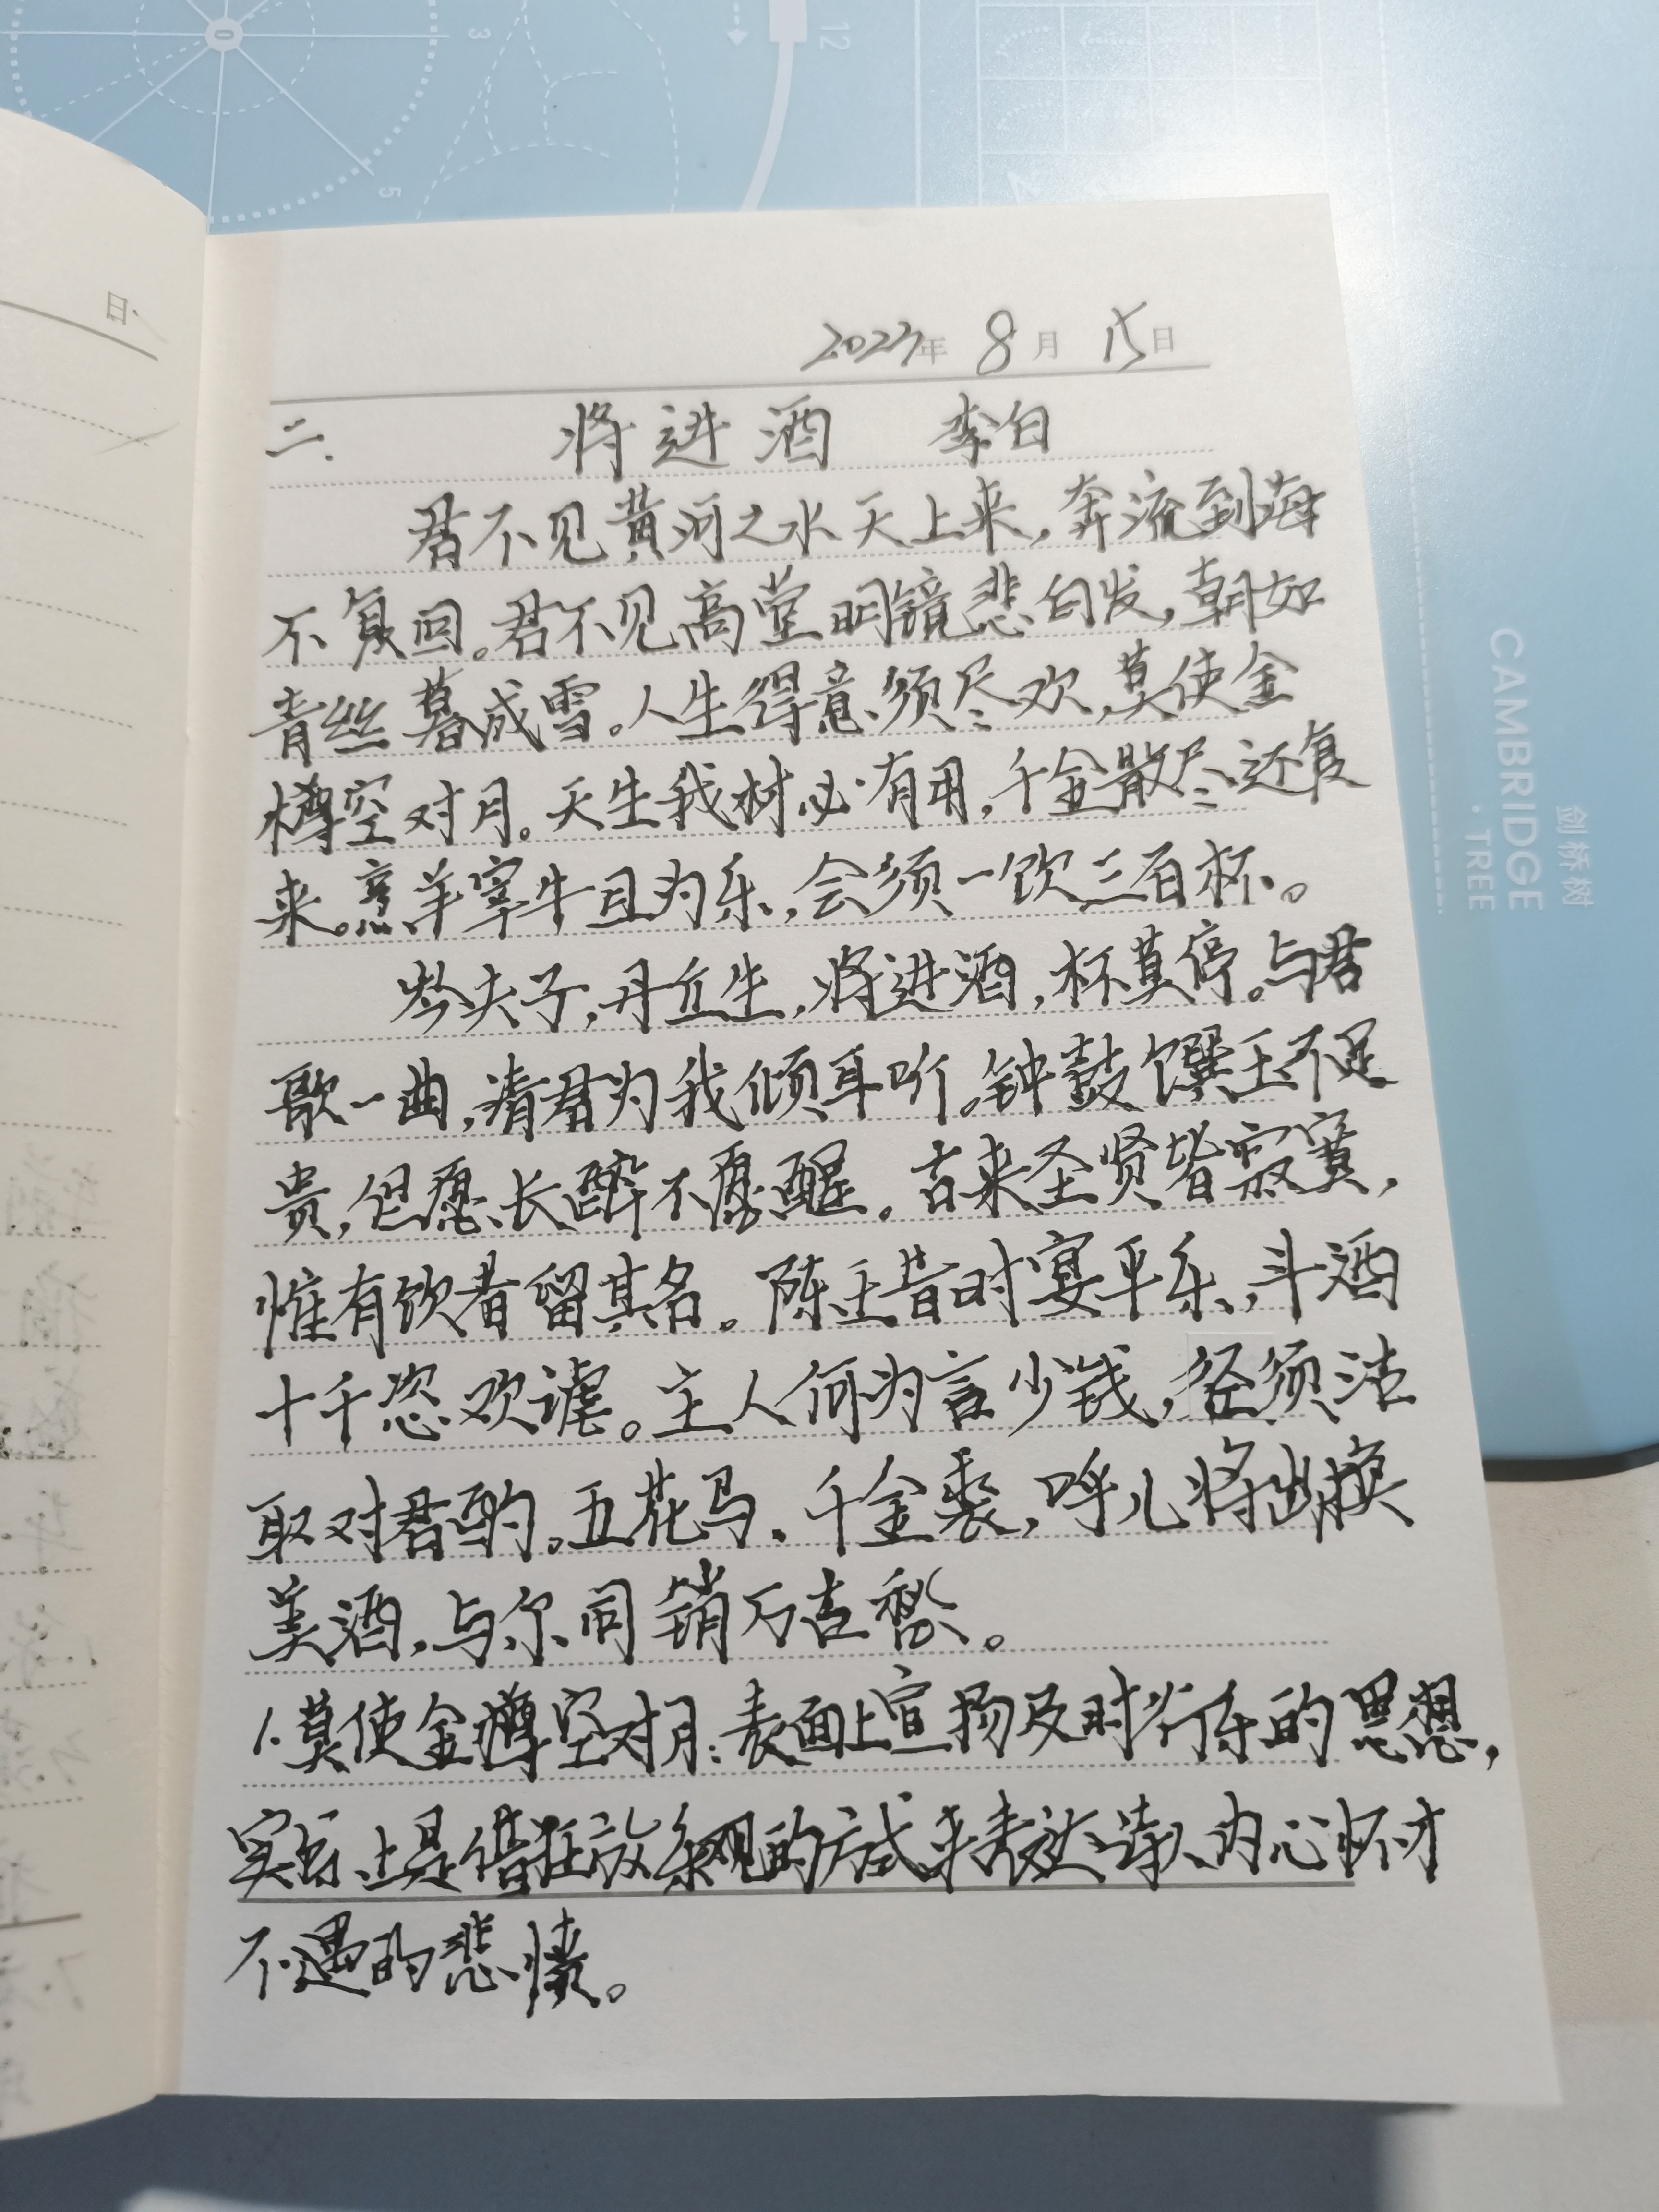 12
3
5
日
2023年 8月 15日
二. 将进酒 李白
君不见黄河之水天上来,奔流到海
不复回。君不见高堂明镜悲白发,朝如
青丝暮成雪。人生得意须尽欢,莫使金
樽空对月。天生我材必有用,千金散尽还复
来。烹羊宰牛且为乐,会须一饮三百杯。
岑夫子,丹丘生,将进酒,杯莫停。与君
歌一曲,请君为我倾耳听。钟鼓馔玉不足
贵,但愿长醉不愿醒。古来圣贤皆寂寞,
惟有饮者留其名。陈王昔时宴平乐,斗酒
十千恣欢谑。主人何为言少钱,径须沽
取对君酌。五花马、千金裘,呼儿将出换
美酒,与尔同销万古愁。
1.莫使金樽空对月:表面上宣扬及时行乐的思想,
实际上是借狂放乐观的方式来表达诗人内心怀才
不遇的悲愤。
CAMBRIDGE
·TREE
剑桥树